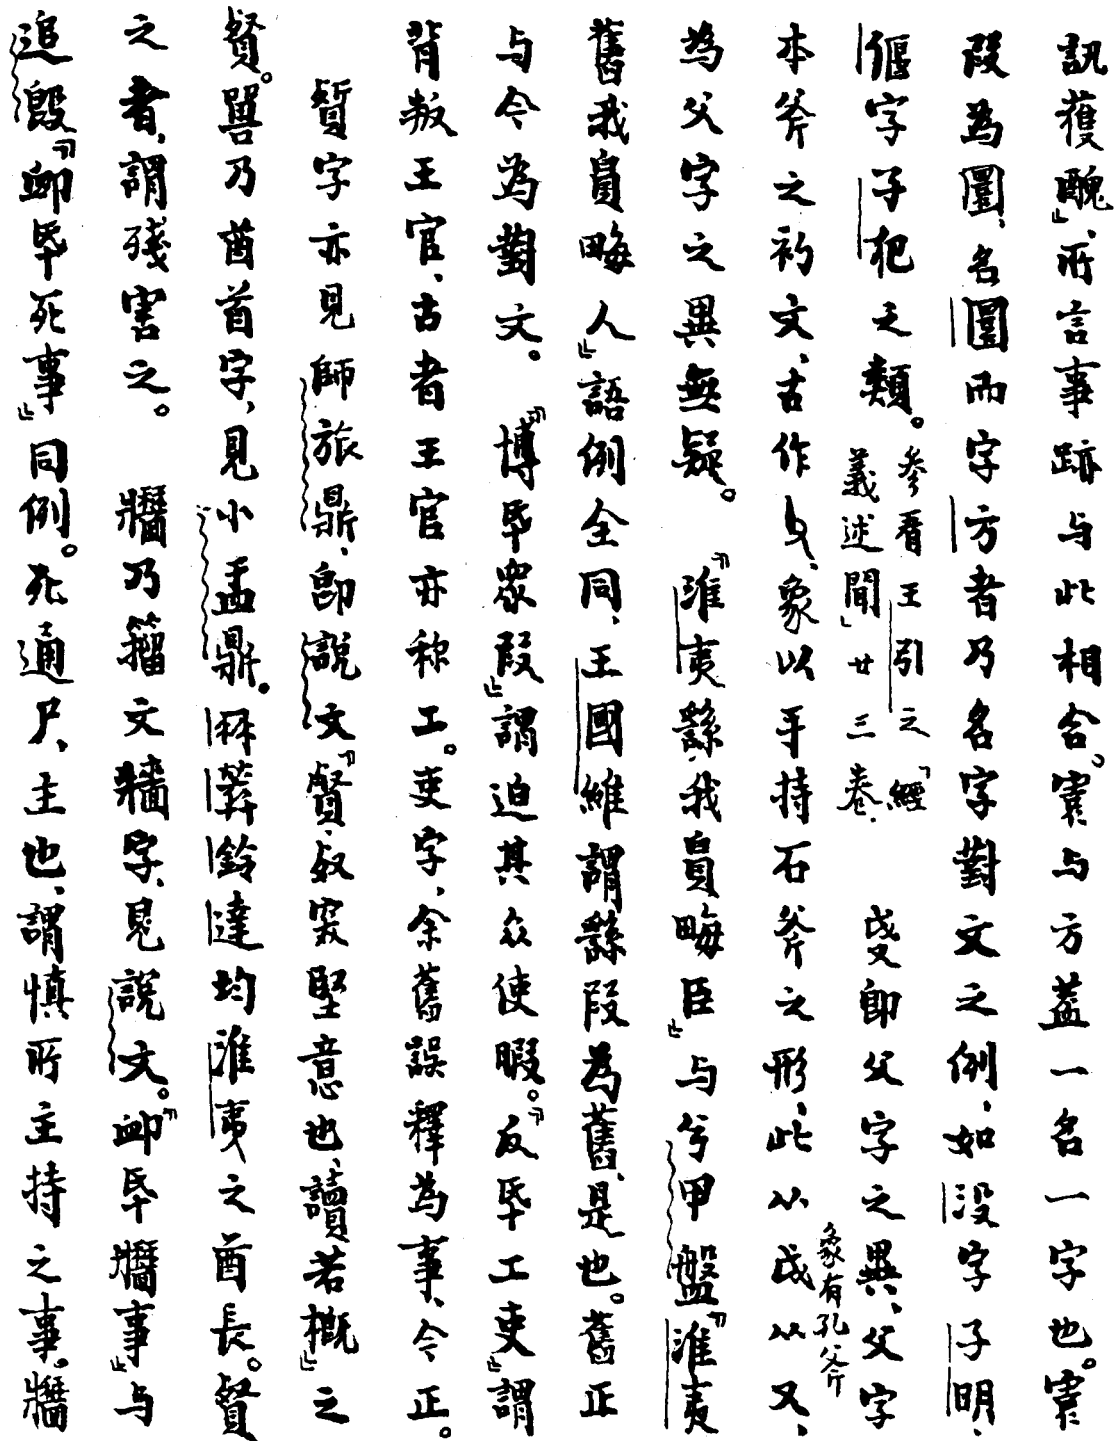 訊獲醜」、所言事跡与此相合。寰、与方蓋一名一字也。寰
叚為圜、名圜而字方者乃名字對文之例、如没字子明、
偃字子犯之類。参看王引之「經義述聞」廿三卷。 即父字之異、父字
本斧之初文、古作、象以手持石斧之形、此从戉从又、象有孔斧
為父字之異無疑。 「淮夷繇我畮臣」与兮甲盤「淮夷
舊我畮人」語例全同、王國維謂繇叚為舊、是也。舊正
与今為對文。 「博氒眾叚」謂迫其众使暇。「反氒工吏」謂
背叛王官、古者王官亦称工。吏字、余舊誤釋為事、今正。
字亦見師旅鼎、即説文「叡、奴探堅意也、讀若概」之
。嘼乃酋首字、見小盂鼎。冉鈴達均淮夷之酋長。
之者、謂殘害之。 乃籀文牆字、見説文。「卹氒牆事」与
追毁「卹氒死事」同例。死通尸、主也、謂慎所主持之事。牆